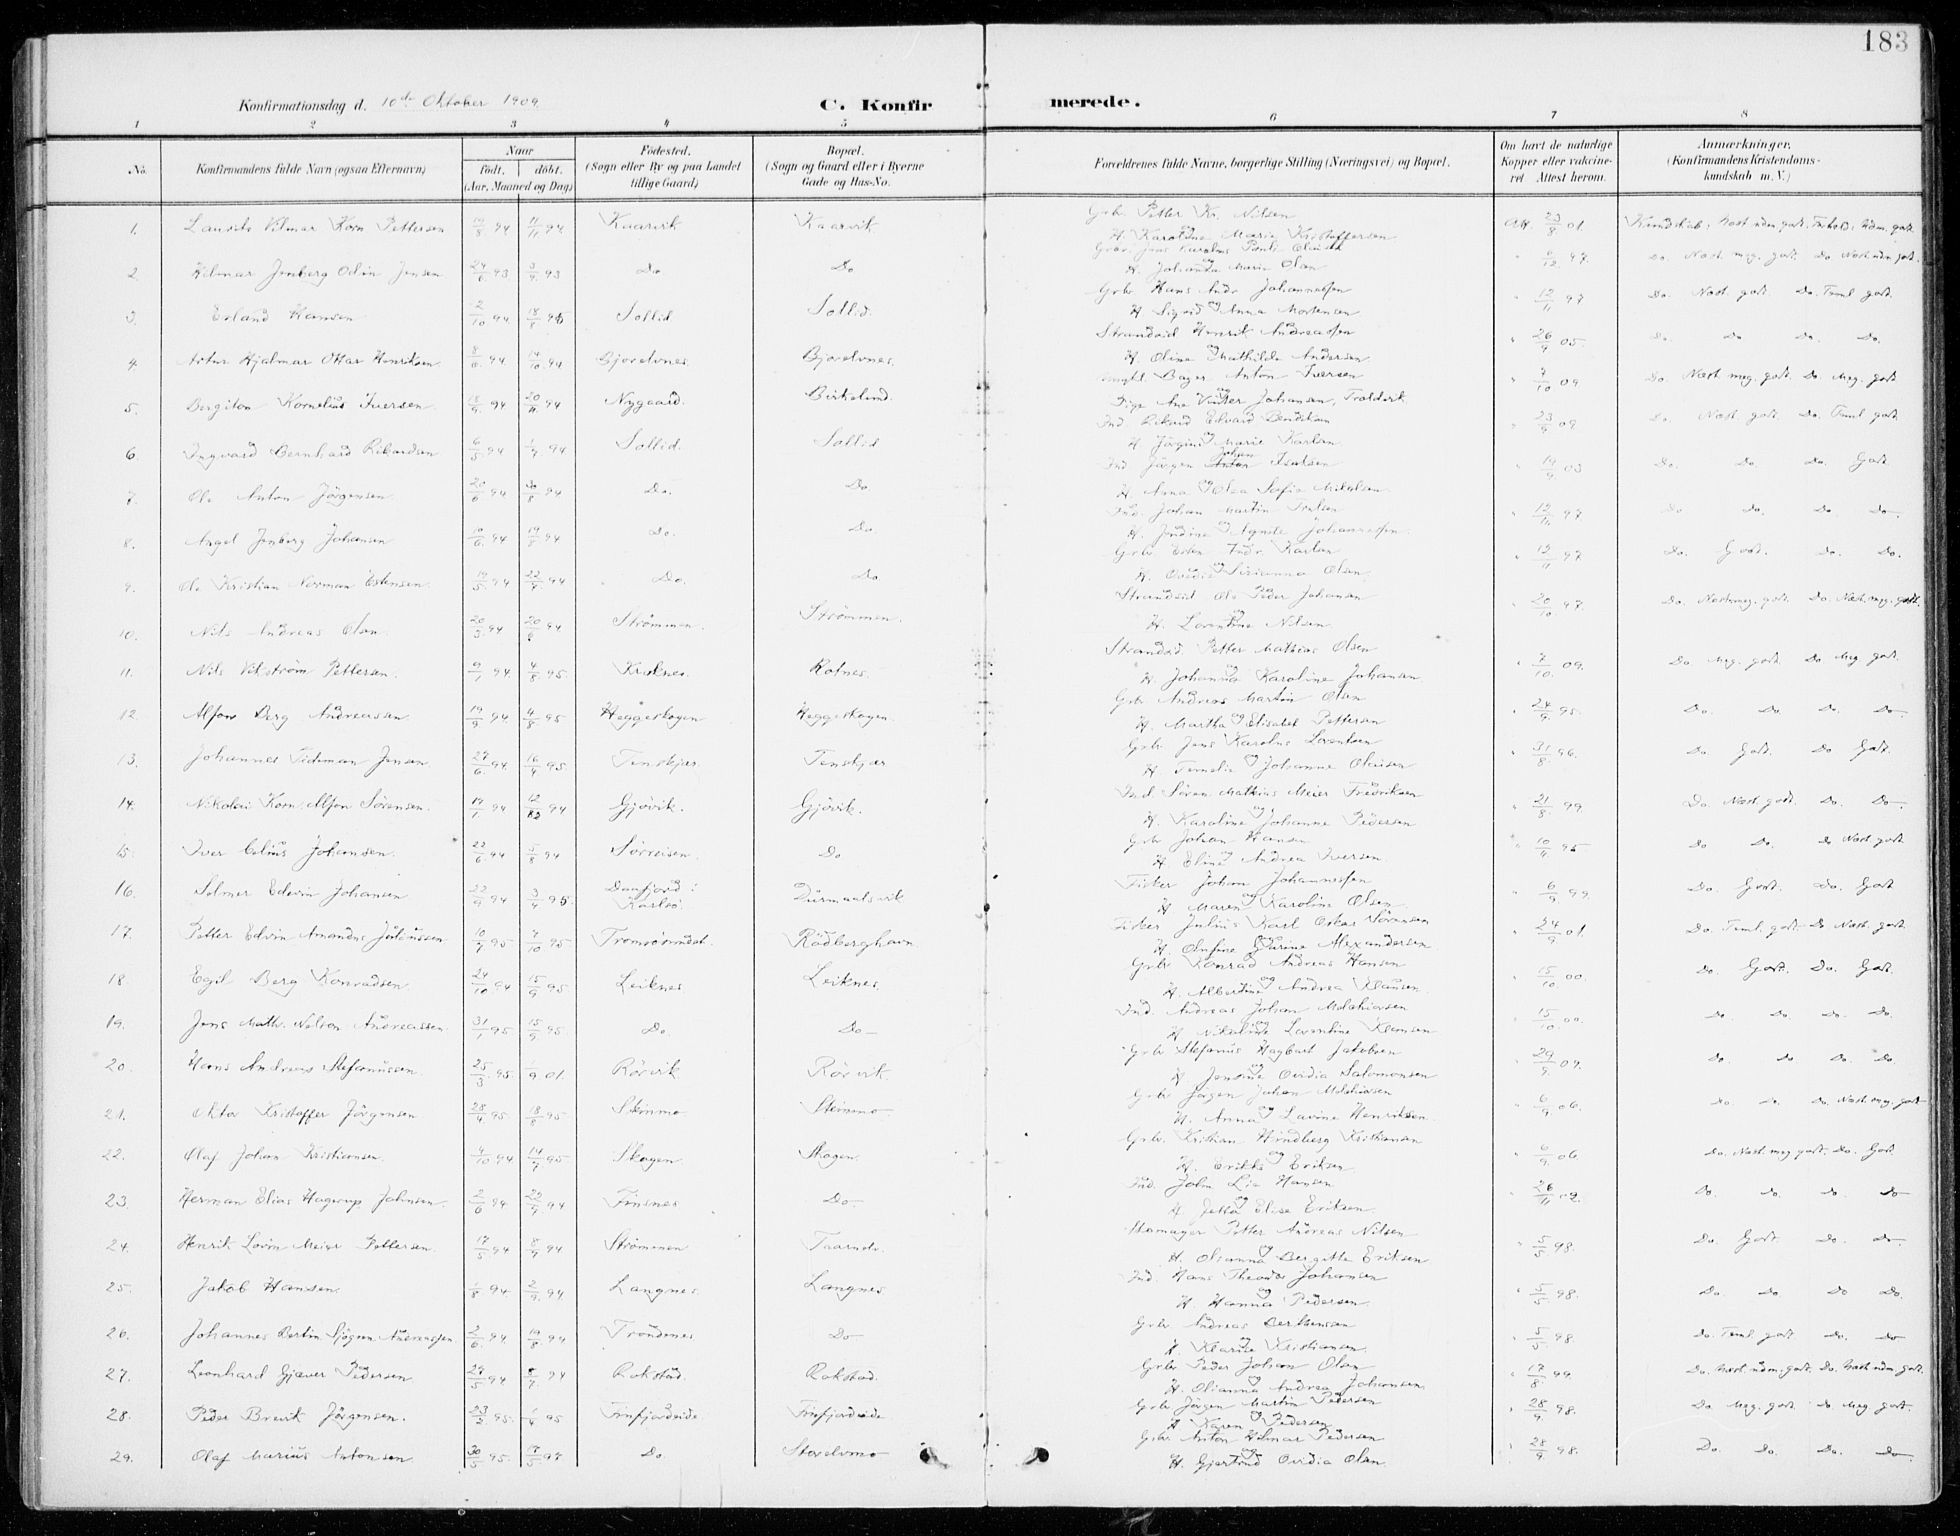 183
Konfirmationsdag d. 10de Oktober 1909.
C. Konfirmerede.
1 2 3 4 5 6 7 8
No.
Konfirmandens fulde Navn (ogsaa Efternavn)
Naar
født. døbt.
(Aar, Maaned og Dag)
Fødested.
(Sogn eller By og paa Landet
tillige Gaard)
Bopæl.
(Sogn og Gaard eller i Byerne
Gade og Hus-No.
Forældrenes fulde Navne, borgerlige Stilling (Næringsvei) og Bopæl.
Om havt de naturlige
Kopper eller vakcine-
ret Attest herom.
Anmærkninger.
(Konfirmandens Kristendoms-
kundskab m. V.)
1. Vilmar Korn Pettersen Kaarvik Kaarvik Petter Kr. Nilsen
H. Karoline Marie Kristoffersen
2. Hilmar Jenberg Odin Jensen 24/6 93 3/9 93 Do Do
H. Johanna Marie Olsen
3. Erland Hansen 2/10 94 Sollid Sollid. Gbr. Hans Andr. Johannessen 12/11 97 Do. Nest. godt. Do. Teml godt.
H. Sigrid Anna Mortensen
4. Artur Hjalmar Ottar Henriksen 8/6 94 14/10 94 Bjorelvnes. Bjorelvnes. Strandsid Henrik Andreassen 26/9 05. Do Do Do. Do.
H. Oline Mathilde Andersen
5. Bergiton Kornelius Iversen 94 20/11 94 Nygaard. Birkelund. Anton Iversen 7/10 09 Do. Nest meg. godt. Do. Meg. godt
Pige Ane Johansen,
6. Ingvard Bernhard Rikardsen 6/5 94 94 Sollid. Sollid Ind Rikard Edvard Bendiksen 23/9 09 Do Nest. godt. Do. Teml godt.
H. Jørgine Marie Karlsen
7. Ole Anton Jørgensen 20/6 94 30/8 94 Do. Do Ind. Jørgen Johan Isaksen 19/9 03 Do. Do. Do. Godt
H. Anna Olea Sofie Mikalsen
8. Angel Jenberg Johansen 94 94 Do. Do Ind. Johan Martin 12/11 97 Do Do. Do. Do.
H. Jendine Agnete Johannessen.
9. Ole Kristian Norman Estensen. 94 22/7 94 Do. Do Gbr Esten Andr. Karlsen 12/11 97 Do. Godt. Do. Do.
H. Ovedie Sirianna Olsen
10. Nils Andreas Olsen 20/3 94 20/6 94 Strømmen. Strømmen. Strandsid Ole Peder Johansen 20/10 97. Do. Nest meg. godt. Do. Nest. meg. godt.
H. Lorentine Nilsen
11. Nils Vikstrøm Pettersen. 9/1 94. 4/8 95. Kroknes. Rotnes. Strandsid. Petter Mathias Olsen 7/10 09. Do. Meg. godt. Do Meg godt.
H. Johanna Karoline Johansen
12. Alfon Berg Andreassen 19/9 94 4/8 95 Heggeskogen Heggeskogen. Gbr Andreas Martin Olsen 24/9 95. Do. Do. Do. Do.
H. Martha Elisabet Pettersen
13. Johannes Tideman Jensen 27/6 94. 16/4 95. Tenskjær Tenskjær Gbr. Jens Karolus Lorentsen 31/8 96. Do Godt. Do Godt.
H. Johanne Olausen
14. Nikolai Korn. Alfon Sørensen. 19/1 94 94 Gjøvik. Gjøvik. Ind Søren Mathias Meier Fredriksen 21/8 99 Do. Nest. godt. Do. Do.
H. Karoline Johanne Pedersen
15. Iver Celius Johansen. 22/6 94 5/8 94 Sørreisen. Do Gbr Johan Hansen 95 Do Do. Do Nest godt
H. Eline Andrea Iversen.
16. Selmer Edevin Johansen 22/9 94 3/4 95. Danfjord i Durmaalsvik Fisker Johan Johannessen 6/9 99. Do. Godt. Do. Godt
Karlsø. H Maren Karoline Olsen
17. Petter Edvin Amandus Juliussen 95 7/10 95 Tromsø Rødberghavn. Fisker Julius Karl Oskar Sørensen 24/9 01. Do. Teml. godt. Do Nest. godt.
H. Olufine Karine Alexandersen
18. Egil Berg Konradsen 24/10 94 15/9 95 Leiknes Leiknes Gbr Konrad Andreas Hansen 15/10 00. Do. Godt. Do. Godt.
H. Albertine Andrea Klausen.
19. Jens Math. Nelson Andreassen 31/1 95 15/9 95. Do. Do Ind. Andreas Johan Melchiorsen 15/10 00. Do Do. Do Do.
H. Nikoline Lorentine Klausen
20. Hans Andreas Stefanussen. 25/3 95. 01. Rørvik. Rørvik. Gbr Stefanus Hagbart Jakobsen 29/9. 09. Do Do Do. Do
H Jensine Ovidia Salomonsen
21. Oktor Kristoffer Jørgensen 28/4 95 18/8 95. Skinmo Steinmo Gbr Jørgen Johan Melchiorsen 6/9 06. Do. Do. Do. Nest. meg. godt
H. Anna Lavine Henriksen.
22. Olaf Johan Kristiansen. 4/10 94. 14/7 95. Skogen Skogen. Gbr. Kristian Hindberg Kristiansen 6/9 06 Do. Nest. meg godt. Do. Godt.
H. Erikka Eriksen
23. Herman Elias Hagerup Johnsen. 2/6 94 22/9 94 Finsnes Do. Ind. John Lie Hansen 26/11 02. Do. Do. Do. Do
H Jetta Elise Eriksen.
24. Henrik Lovin Meier Pettersen. 17/5 94 8/7 94 Strømmen Taarnelv. Petter Andreas Nilsen 5/5 98. Do. Godt Do. Do.
H. Olianna Bergitte Eriksen
25. Jakob Hansen. 94 2/9. 94 Langnes. Langnes. Ind. Hans Theodor Johansen 5/5 98. Do. Do. Do Do.
H. Hanna Pedersen.
26. Johannes Bertin Sjøgren Andreassen 2/6. 94 19/8 94 Trondenes Do Gbr. Andreas Berthensen 5/5. 98. Do. Teml godt Do. Do
H. Klarise Kristiansen.
27. Leonhard Gjæver Pedersen 27/5 94 94 Rokstad. Rokstad. Gbr Peder Johan Olsen 17/8 99. Do. Nest udm. godt. Do. Nest udm. godt.
H. Olianna Andrea Johansen
28. Peder Brevik Jørgensen. 23/2 95. 95 Finfjordeide. Finfjordeide Gbr Jørgen Martin Pedersen 28/9 98. Do Meg. godt. Do Meg godt.
H Karen Pedersen
29. Olaf Marius Antonsen 95. 17/5 Do. Storelvmo Gbr. Anton Hilmar Pedersen 28/9 98. Do. Do. Do. Do
H. Gjertrud Ovidia Olsen.